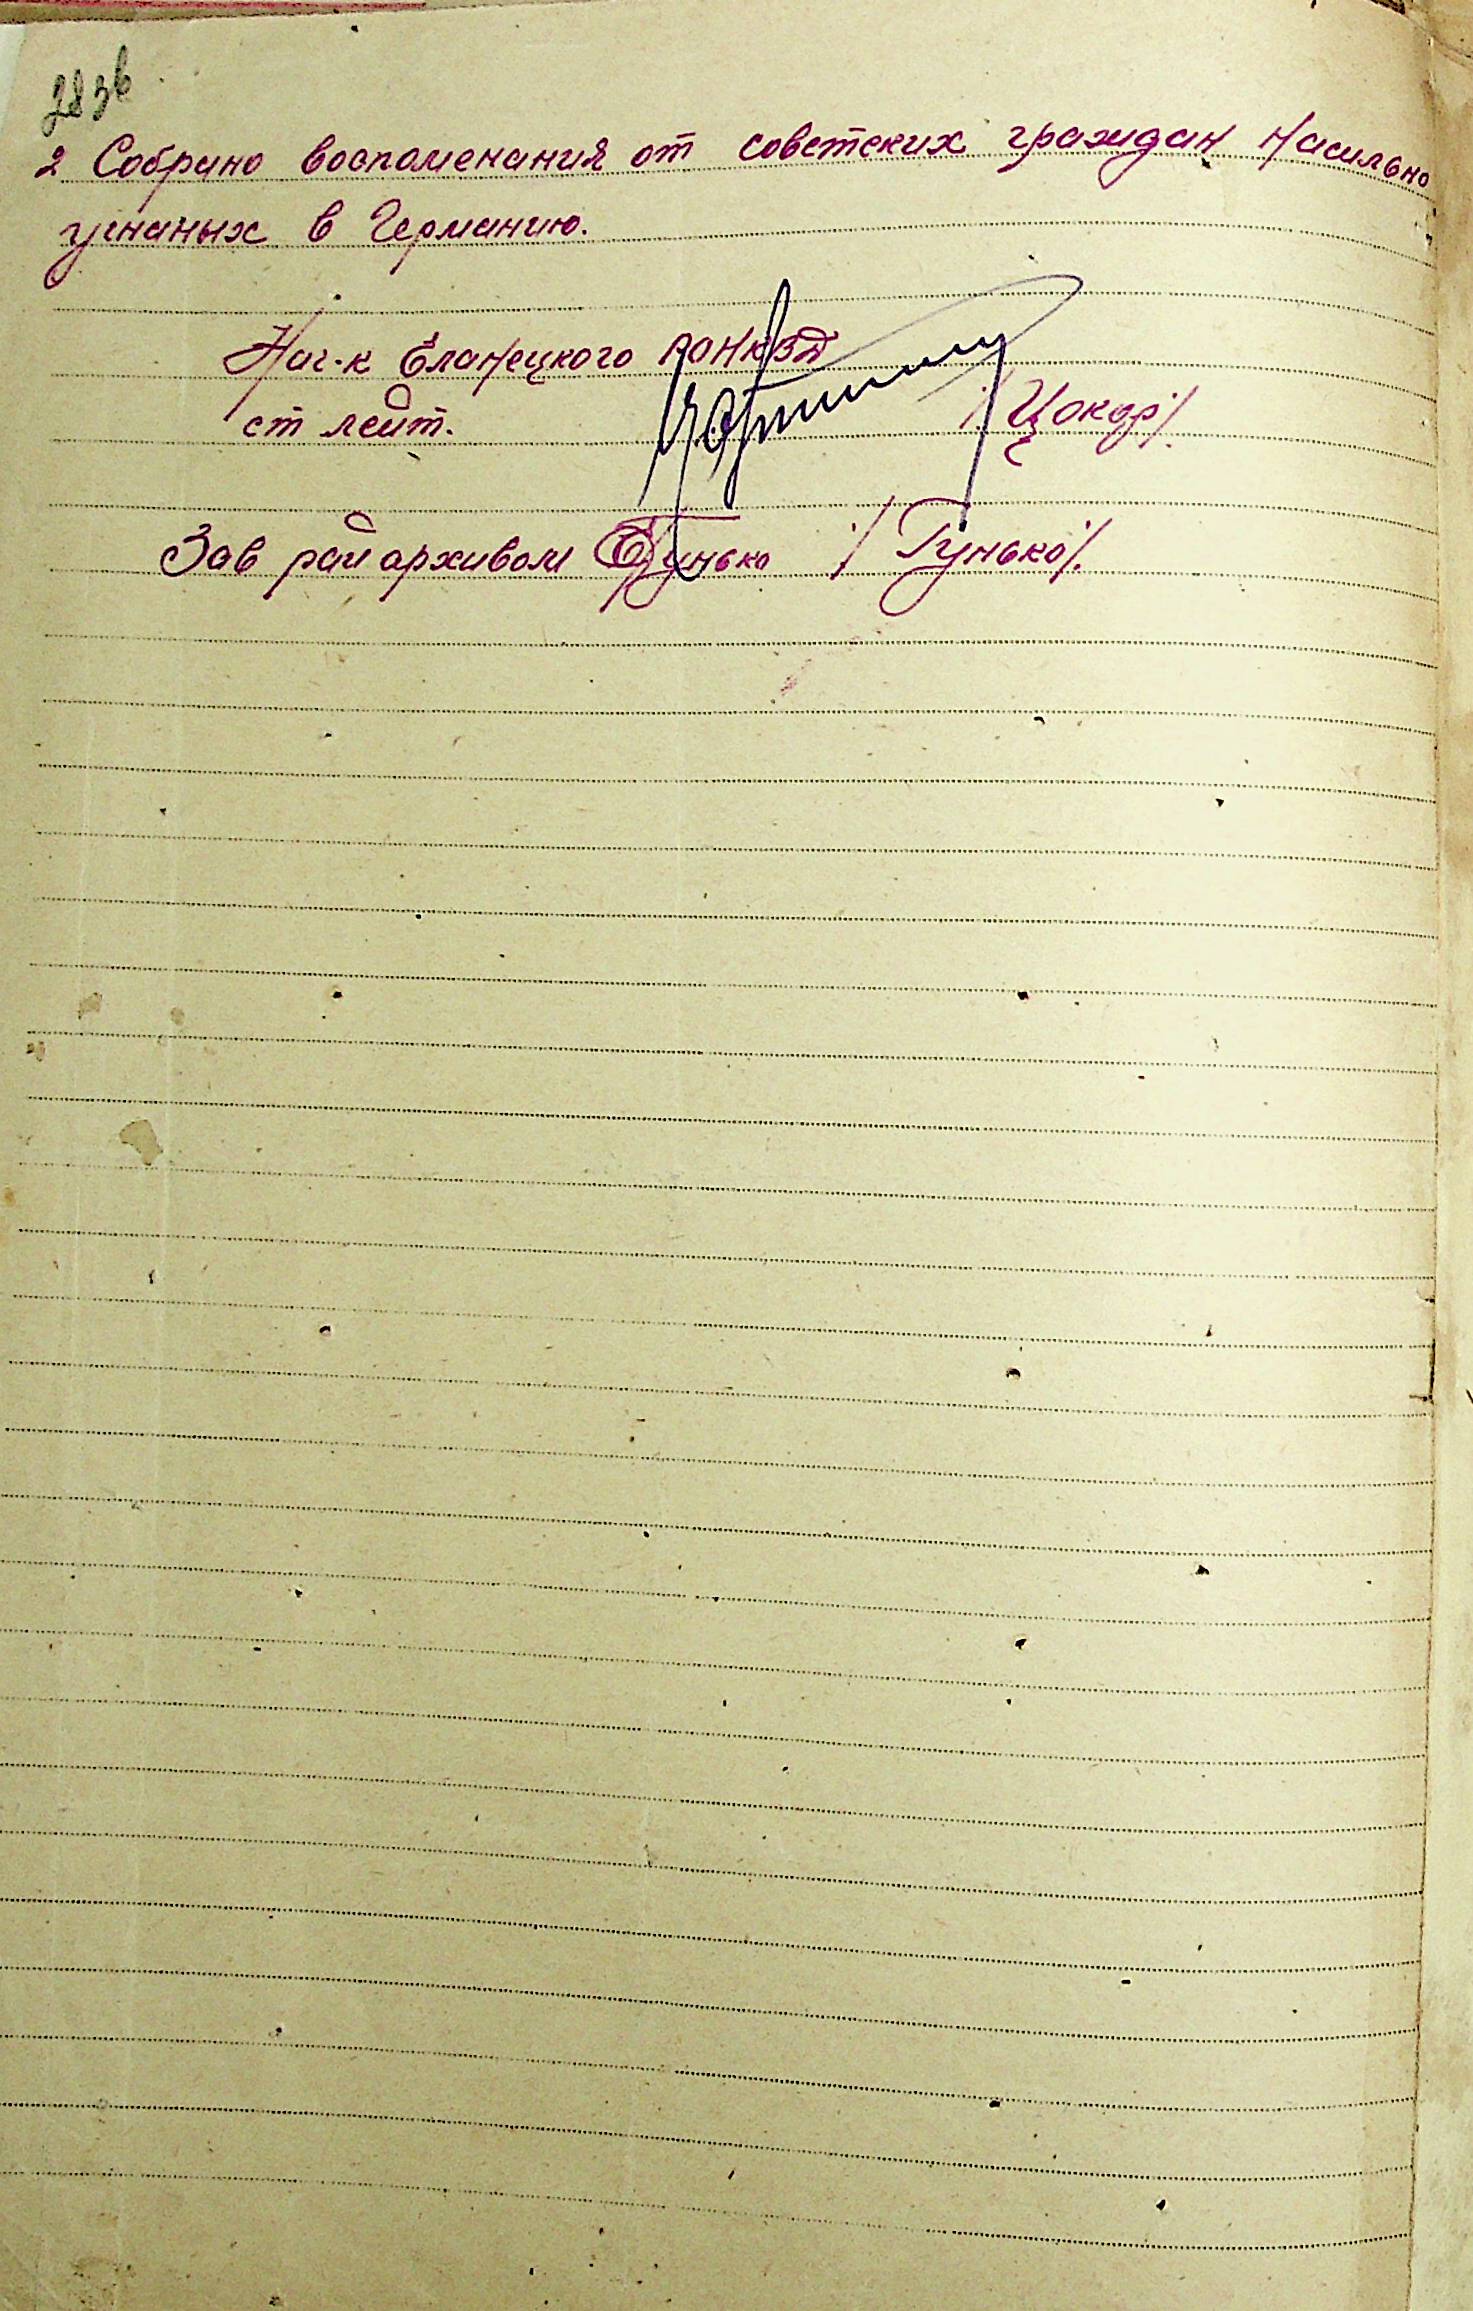 283в
2 Собрано воспоменания от советских граждан насильно
угнаных в Германию.
Нач-к Еланецкого РОНКВД
ст лейт. /Цокур/
Зав рай архивом Гунько /Гунько/.